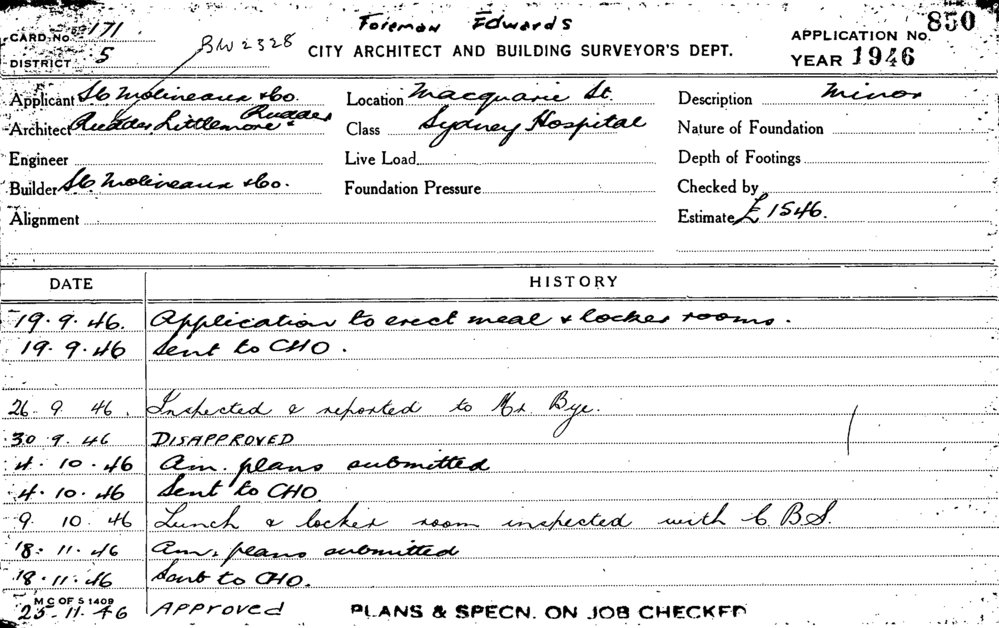 Foreman Edwards
850
CARD No. 171
BW 2328
CITY ARCHITECT AND BUILDING SURVEYOR'S DEPT.
APPLICATION No.
DISTRICT 5
YEAR 1946
Applicant SC Molineaux & Co.
Location Macquarie St.
Description Minor
Architect Rudder Littlemore & Rudder
Class Sydney Hospital
Nature of Foundation
Engineer
Live Load
Depth of Footings
Builder SC Molineaux & Co.
Foundation Pressure
Checked by
Alignment
Estimate £1546.
DATE HISTORY
19.9.46. Application to erect meal & locker rooms.
19.9.46 Sent to CHO.
26.9.46. Inspected & reported to Mr. Bye.
30.9.46 DISAPPROVED
4.10.46 Am. plans submitted
4.10.46 Sent to CHO.
9.10.46 Lunch & locker room inspected with C.B.S.
18.11.46 Am. plans submitted
18.11.46 Sent to CHO.
M C OF S 1409
25.11.46 APPROVED PLANS & SPECN. ON JOB CHECKED